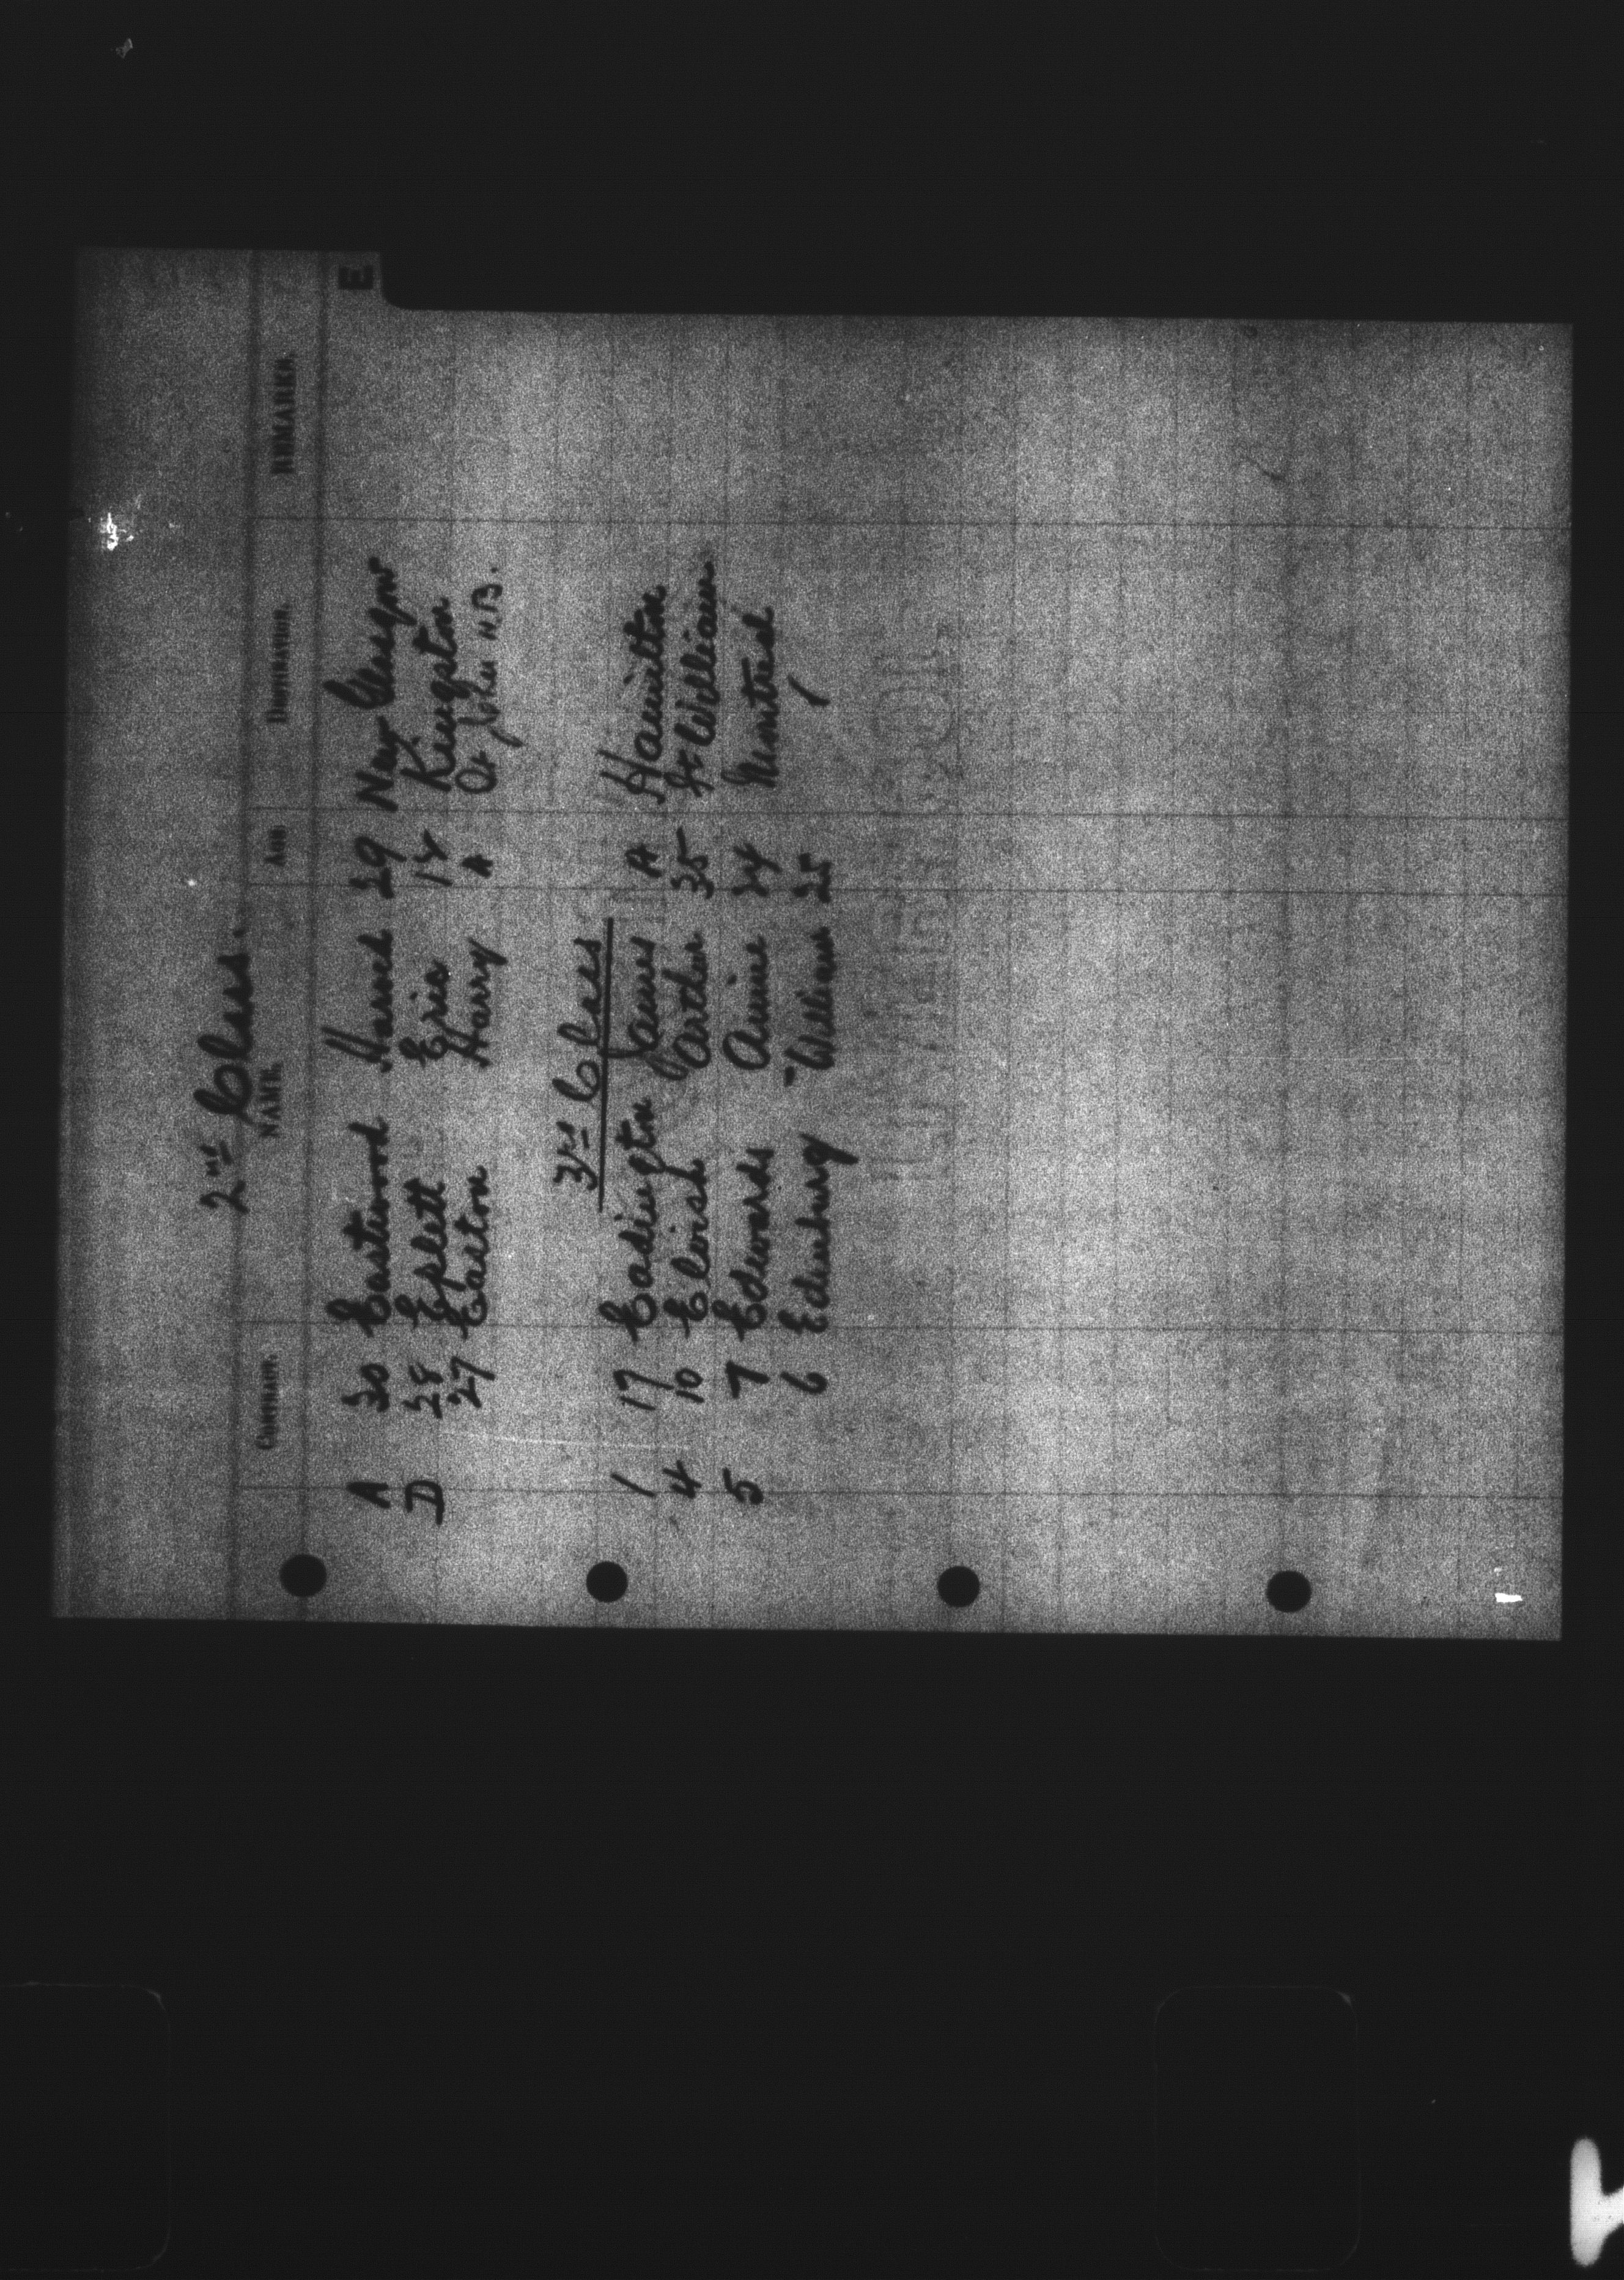 2nd Class.
CONTRACT. NAME. AGE. DESTINATION. REMARKS.
E
A 30 Eastwood Harold 29 New Glasgow
D 28 Eplett Eric 14 Kingston
27 Easton Harry A St John N.B.
3rd Class
1 17 Eadington James A Hamilton
4 10 Elvish Arthur 35 Ft William
5 7 Edwards Annie 24 Montreal
6 Edenburg William 25 "